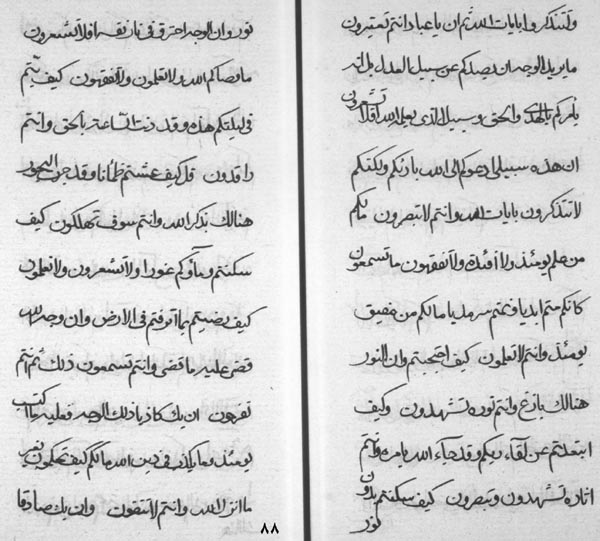 ولتتذكروا بايات الله ثم ان يا عباد انتم تعتبرون
ما يريد الوجه ان يصدكم عن سبيل العدل بل انه
يامركم بالهدى والحق وسبيل الذي يعلم الله افلا تشعرون
ان هذه سبيلى ادعوكم الى الله بارئكم ولكنكم
لا تتذكرون بايات الله وانتم لا تبصرون مالكم
من علم يومئذ ولا افئدة ولا تفقهون ما تسمعون
كانكم متم ابديا ونمتم سرمديا مالكم من مفيق
يومئذ وانتم لا تعلمون كيف احتجبتم وان النور
هنالك بازغ وانتم نوره تشهدون وكيف
ابتعدتم عن لقاء ربكم وقد جاء الله بامره وانتم
اثاره تشهدون وتبصرون كيف سكنتم بدون
نور
نور وان الوجه احترق فى نار نفسه افلا تشعرون
ما وصاكم الله بد لا تعلمون ولا تفقهون كيف بتم
فى ليلتكم هذه وقد دنت الساعة بالحق وانتم
راقدون قل كيف عشتم ظمانا وقد جرت البحور
هنالك بذكر الله وانتم سوف تهلكون كيف
سكنتم وماؤكم غورا ولا تشعرون ولا تعلمون
كيف رضيتم بما اترفتم فى الارض وان وجه الله
قضى عليه ما قضى وانتم تسمعون ذلك ثم انتم
تفرحون ان يك كاذبا ذلك الوجه فعليه ما اكتسب
يومئذ وما يكذب فى دين الله مالكم كيف تحكمون بغير
ما انزل الله وانتم لا تتقون وان يك صادقا
٨٨